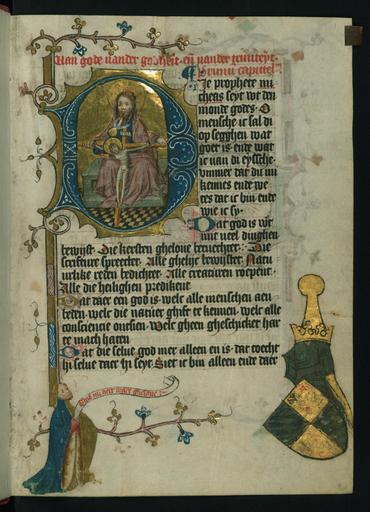 Van gode vander godheit en vander triniteyt
Primum capittel
Die prophete mi
cheas seyt wt den
monde godes O
mensche ic sal di
op segghen wat
goet is ende wat
ic van di eyssche
ummer dat du mi
kennes ende we
tes dat ic bin ende
wie ic sy
Dat god is wijt
mit veel dinghen
bewijst Die kersten ghelove
scrifture spreecket Alle ghelijc bewijster Natu
urlike reden bedichtet Alle creaturen roepent
Alle die heilighen predikent
Dat daer een god is welc alle menschen aen
beden welc die natuer ghift te kennen welc alle
consciencie ontsien welc gheen gheschicket har
te mach haten
Dat die selve god mer alleen en is dat toecht
hi selve daer hi seyt Siet ic bin alleen ende daer